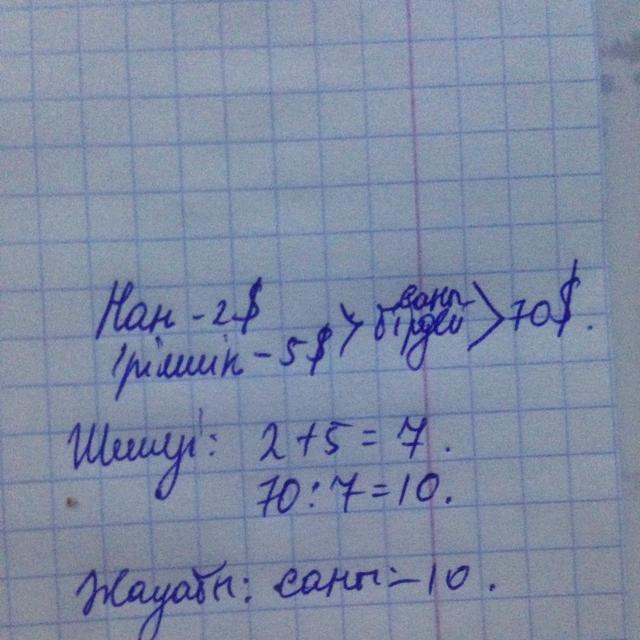 Нан - 2$
Ірімшік - 5$ > саны бірдей > 70$.
Шешуі: 2 + 5 = 7.
70 : 7 = 10.
Жауабы: саны - 10.